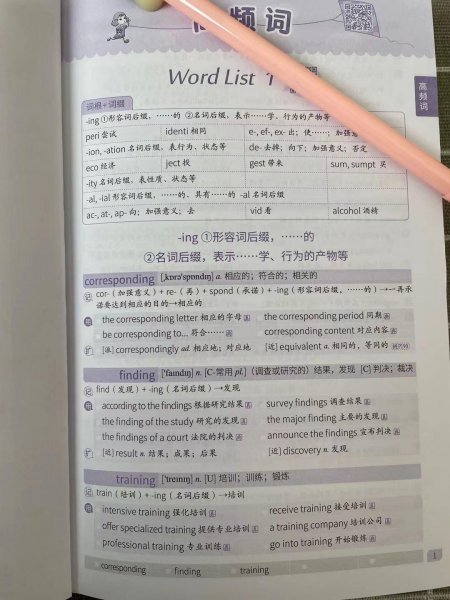 高频词
Word List 1
高频词
词根+词缀
-ing ①形容词后缀，……的 ②名词后缀，表示……学、行为的产物等
peri 尝试 identi 相同 e-, ef-, ex- 出；使……；加强意
-ion, -ation 名词后缀，表行为、状态等 de- 去掉；向下；加强意义；否定
eco 经济 ject 投 gest 带来 sum, sumpt 买
-ity 名词后缀，表性质、状态等
-al, -ial 形容词后缀，……的、具有……的 -al 名词后缀
ac-, at-, ap- 向；加强意义；去 vid 看 alcohol 酒精
-ing ①形容词后缀，……的
②名词后缀，表示……学、行为的产物等
corresponding [ˌkɒrəˈspɒndɪŋ] a. 相应的；符合的；相关的
记 cor-（加强意义）+ re-（再）+ spond（承诺）+ -ing（形容词后缀，……的）→一再承
诺要达到相应的目的→相应的
the corresponding letter 相应的字母 the corresponding period 同期
be corresponding to... 符合…… corresponding content 对应内容
[派] correspondingly ad. 相应地；对应地 [近] equivalent a. 相同的，等同的
finding [ˈfaɪndɪŋ] n. [C-常用 pl.]（调查或研究的）结果，发现 [C] 判决；裁决
记 find（发现）+ -ing（名词后缀）→发现
according to the findings 根据研究结果 survey findings 调查结果
the finding of the study 研究的发现 the major finding 主要的发现
the findings of a court 法院的判决 announce the findings 宣布判决
[近] result n. 结果；成果；后果 [近] discovery n. 发现
training [ˈtreɪnɪŋ] n. [U] 培训；训练；锻炼
记 train（培训）+ -ing（名词后缀）→培训
intensive training 强化培训 receive training 接受培训
offer specialized training 提供专业培训 a training company 培训公司
professional training 专业训练 go into training 开始锻炼
corresponding finding training
1